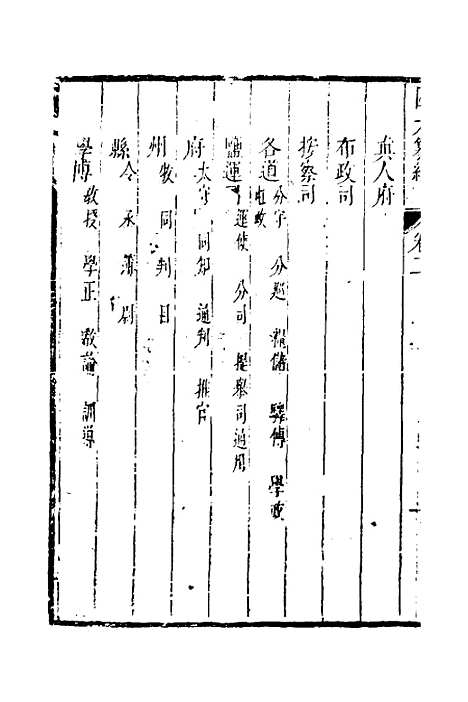 卷二
真人府
布政司
按察司
各道 分守 分巡 糧儲 驛傳 學政
屯政
鹽運 運使 分司 提舉司通用
府 太守 同知 通判 推官
州 牧 同 判 目
縣 令 丞 簿 尉
學博 教授 學正 教諭 訓導